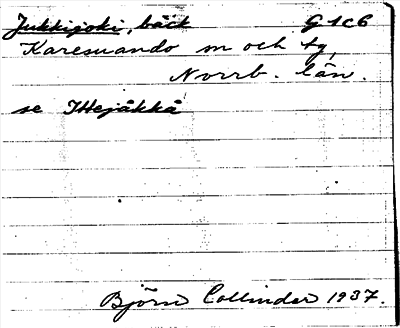 Jukkijoki, bäck G 1c6
Karesuando sn och tg,
Norrb. län.
se Ittejåkkå
Björn Collinder 1937.